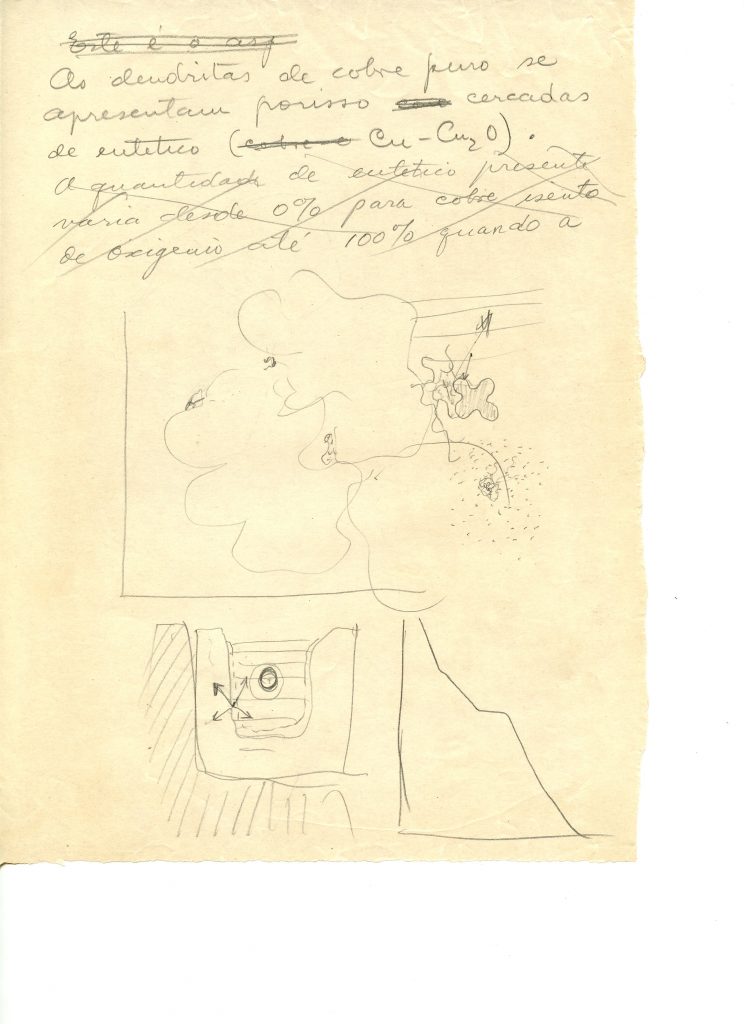 Este é o asp
As dendritas de cobre puro se
apresentam porisso cercadas
de eutetico (cobre e Cu-Cu₂O).
A quantidade de eutetico presente
varia desde 0% para cobre isento
de oxigenio até 100% quando a